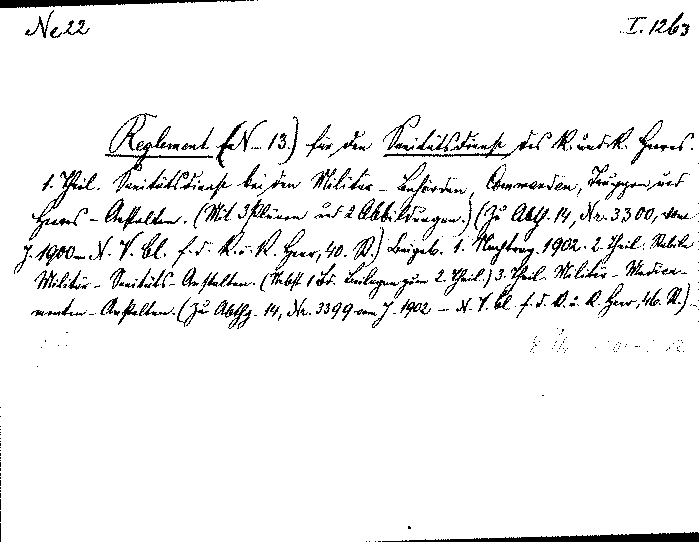 Ne 22 I. 1263
Reglement (N – 13.) für den Sanitätsdienst des K. und K. Heeres.
1. Theil. Sanitätsdienst bei den Militär – behörden, Commanden, Truppen und
Heeres – Anstalten. (Mit 3 Plänen und 2 Abbildungen.) (Zu Abthg. 14, Nr. 3300, vom
J. 1900 – N. V. bl. f. d. K. u. K. Heer, 40. St.) Beigeb. 1. Nachtrag. 1902. 2. Theil. Stabile
Militär – Sanitäts – Anstalten. (Nebst 1 Bd. Beilagen zum 2. Theil.) 3. Theil. Militär – Medica-
menten – Anstalten. (Zu Abthg. 14, Nr. 3399 vom J. 1902 – N. V. bl. f. d. K. u. K. Heer, 46. St.)